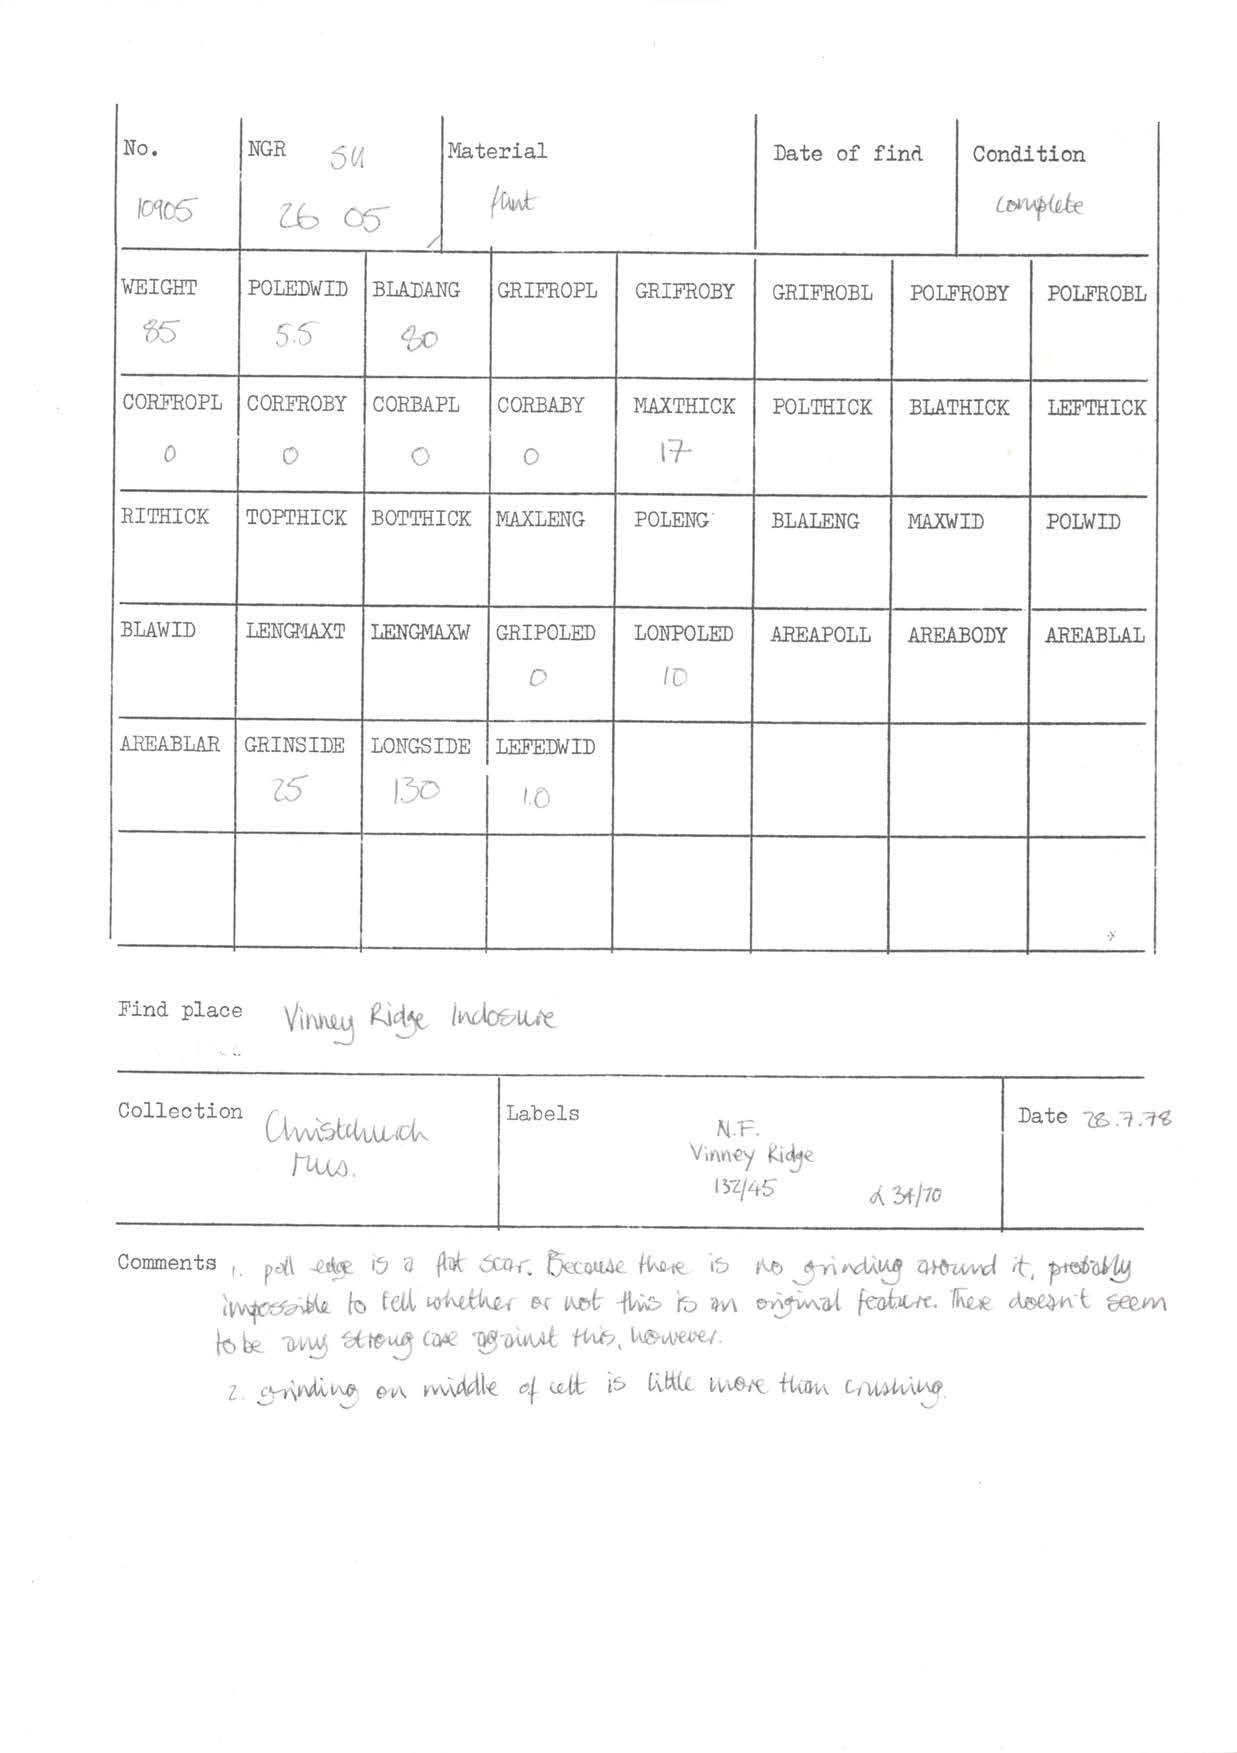 No. NGR SU Material Date of find Condition
10905 26 05 flint complete
WEIGHT POLEDWID BLADANG GRIFROPL GRIFROBY GRIFROBL POLFROBY POLFROBL
85 5.5 80
CORFROPL CORFROBY CORBAPL CORBABY MAXTHICK POLTHICK BLATHICK LEFTHICK
0 0 0 0 17
RITHICK TOPTHICK BOTTHICK MAXLENG POLENG BLALENG MAXWID POLWID
BLAWID LENGMAXT LENGMAXW GRIPOLED LONPOLED AREAPOLL AREABODY AREABLAL
0 10
AREABLAR GRINSIDE LONGSIDE LEFEDWID
25 130 1.0
Find place Vinney Ridge Inclosure
Collection Christchurch Mus.
Labels N.F.
Vinney Ridge
132/45 34/70
Date 28.7.78
Comments 1. poll edge is a flat scar. Because there is no grinding around it, probably
impossible to tell whether or not this is an original feature. There doesn't seem
to be any strong case against this, however.
2. grinding on middle of celt is little more than crushing.